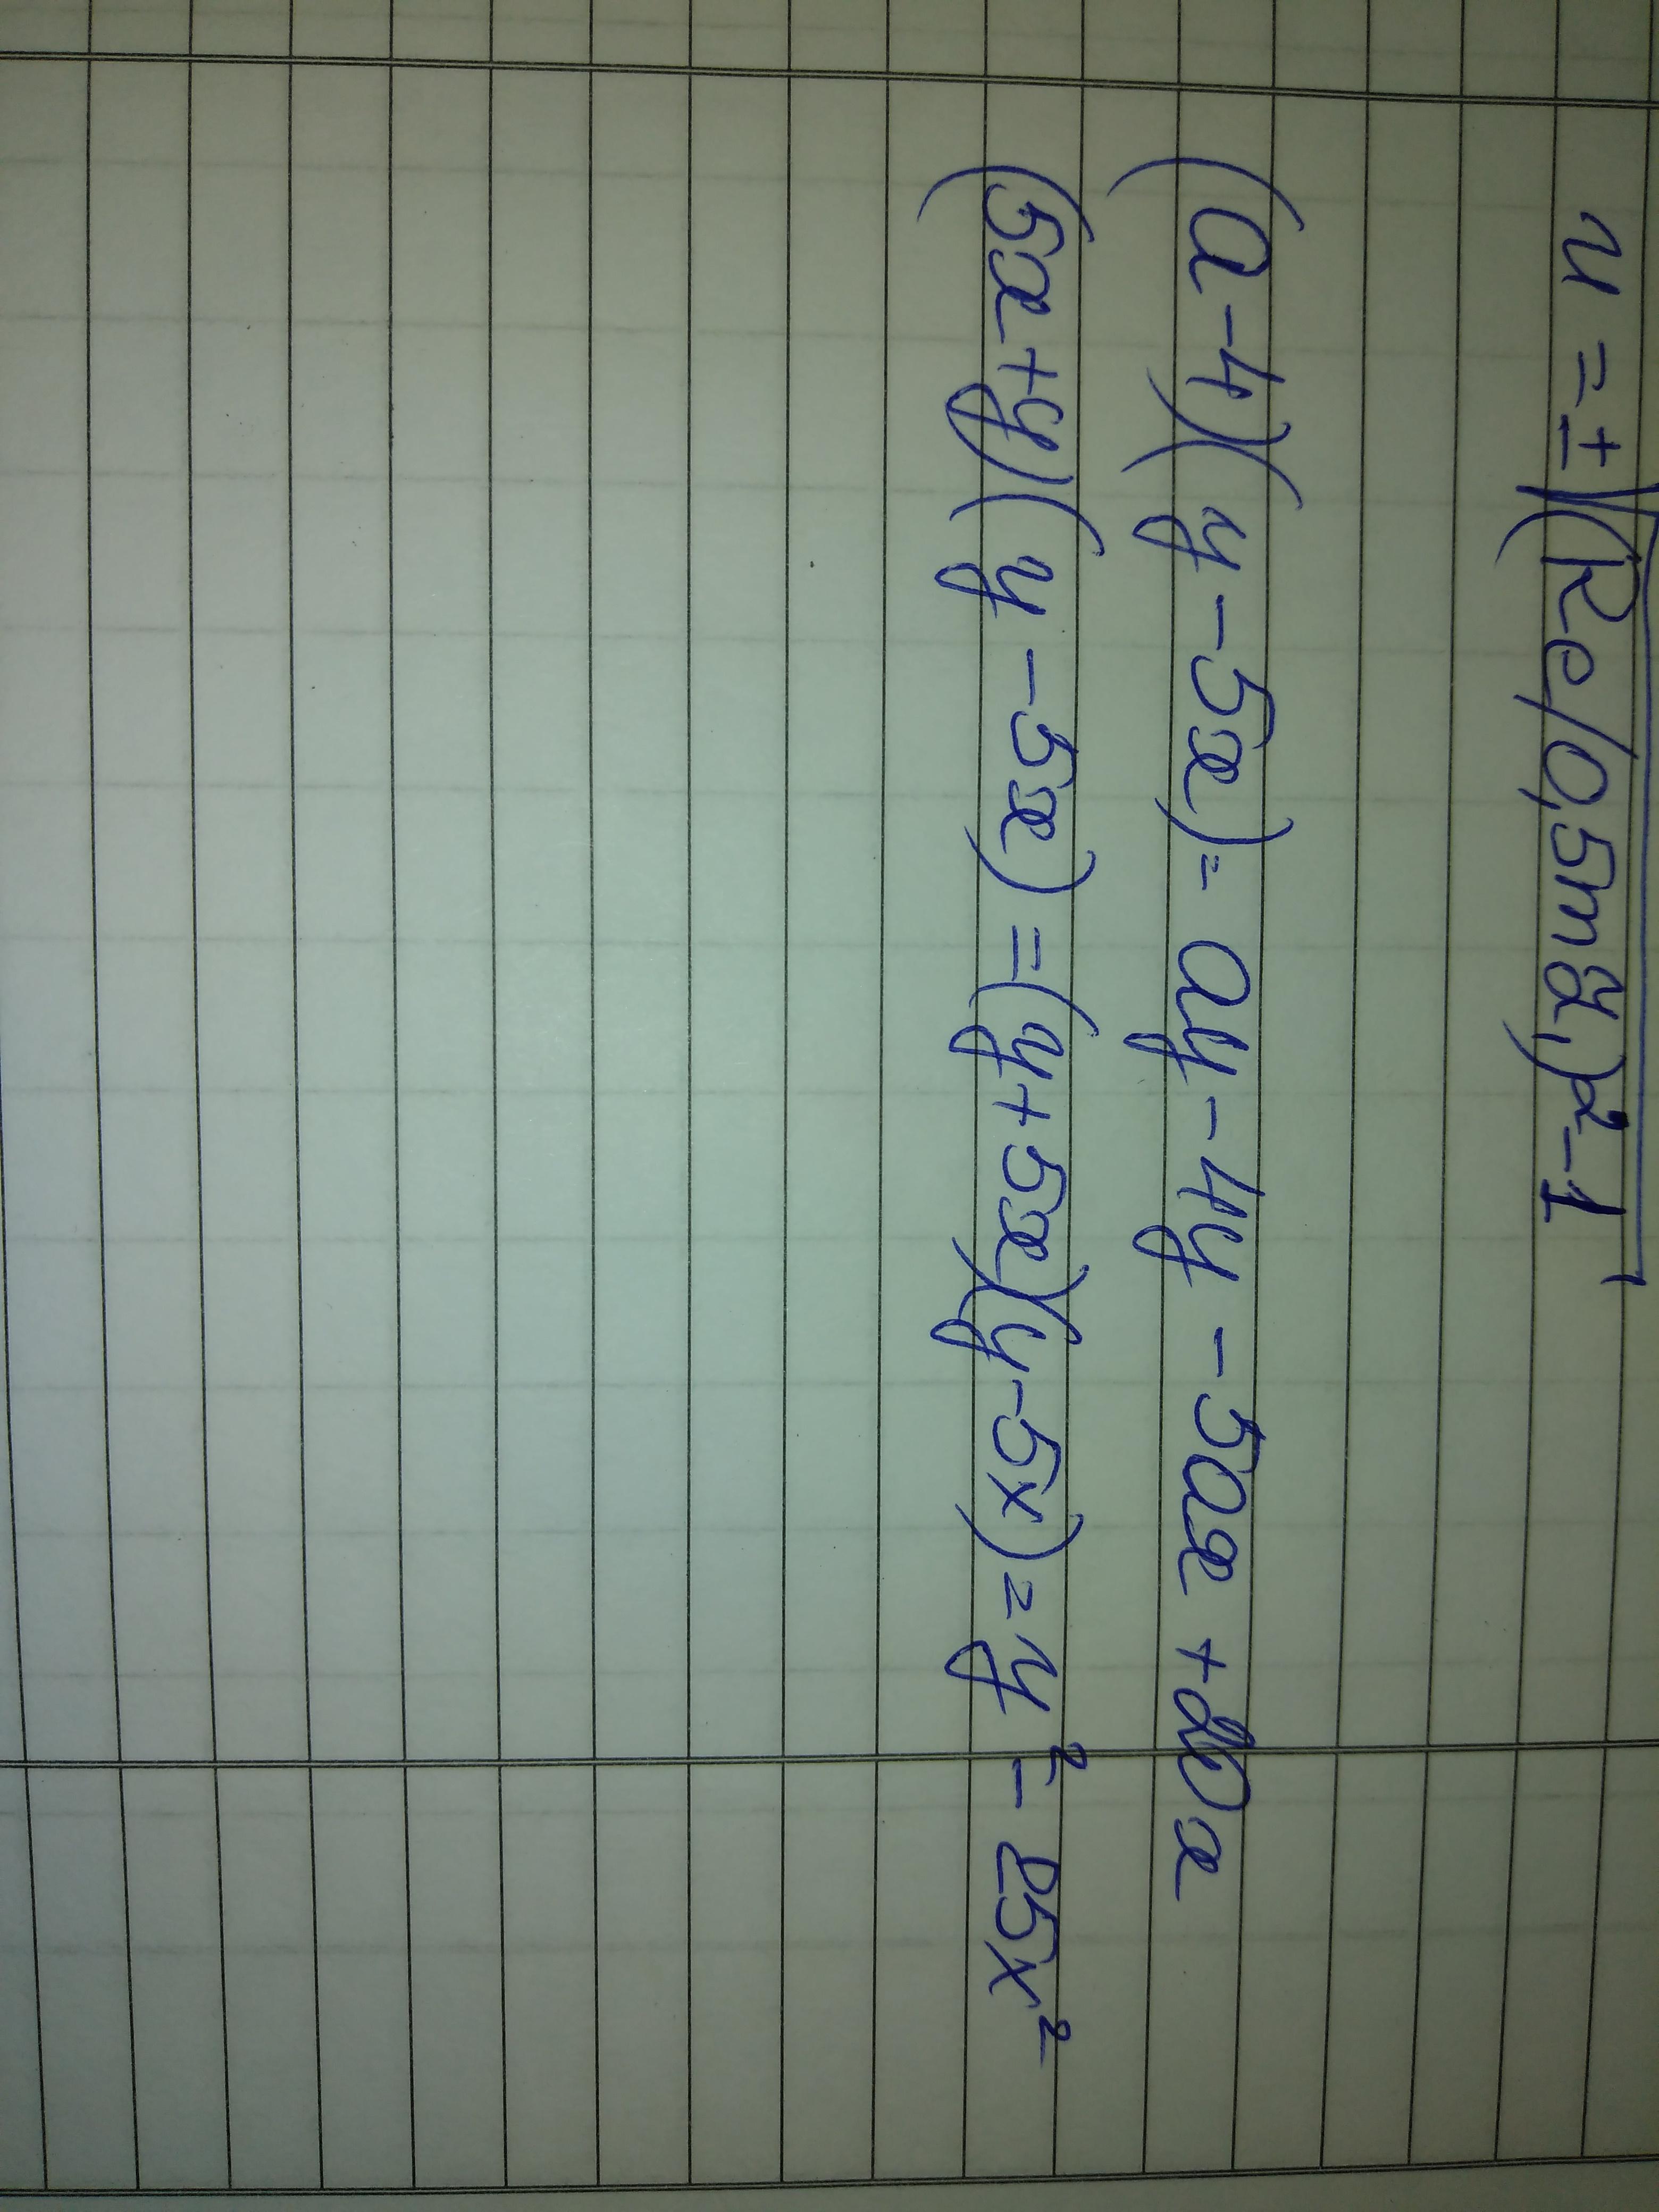 u = ±√((Re/0,5mα₁)²-1
(a-4)(y-5x)= ay-4y-5ax+20x
(5x+y)(y-5x)=(y+5x)(y-5x)=y²-25x²